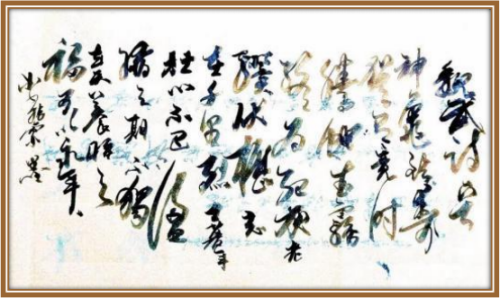 神龜雖壽
猶有竟時
騰蛇乘霧
終為灰老
驥伏櫪志
在千里烈士暮年
壯心不已盈
縮之期不獨
在天養怡之
福可以永年